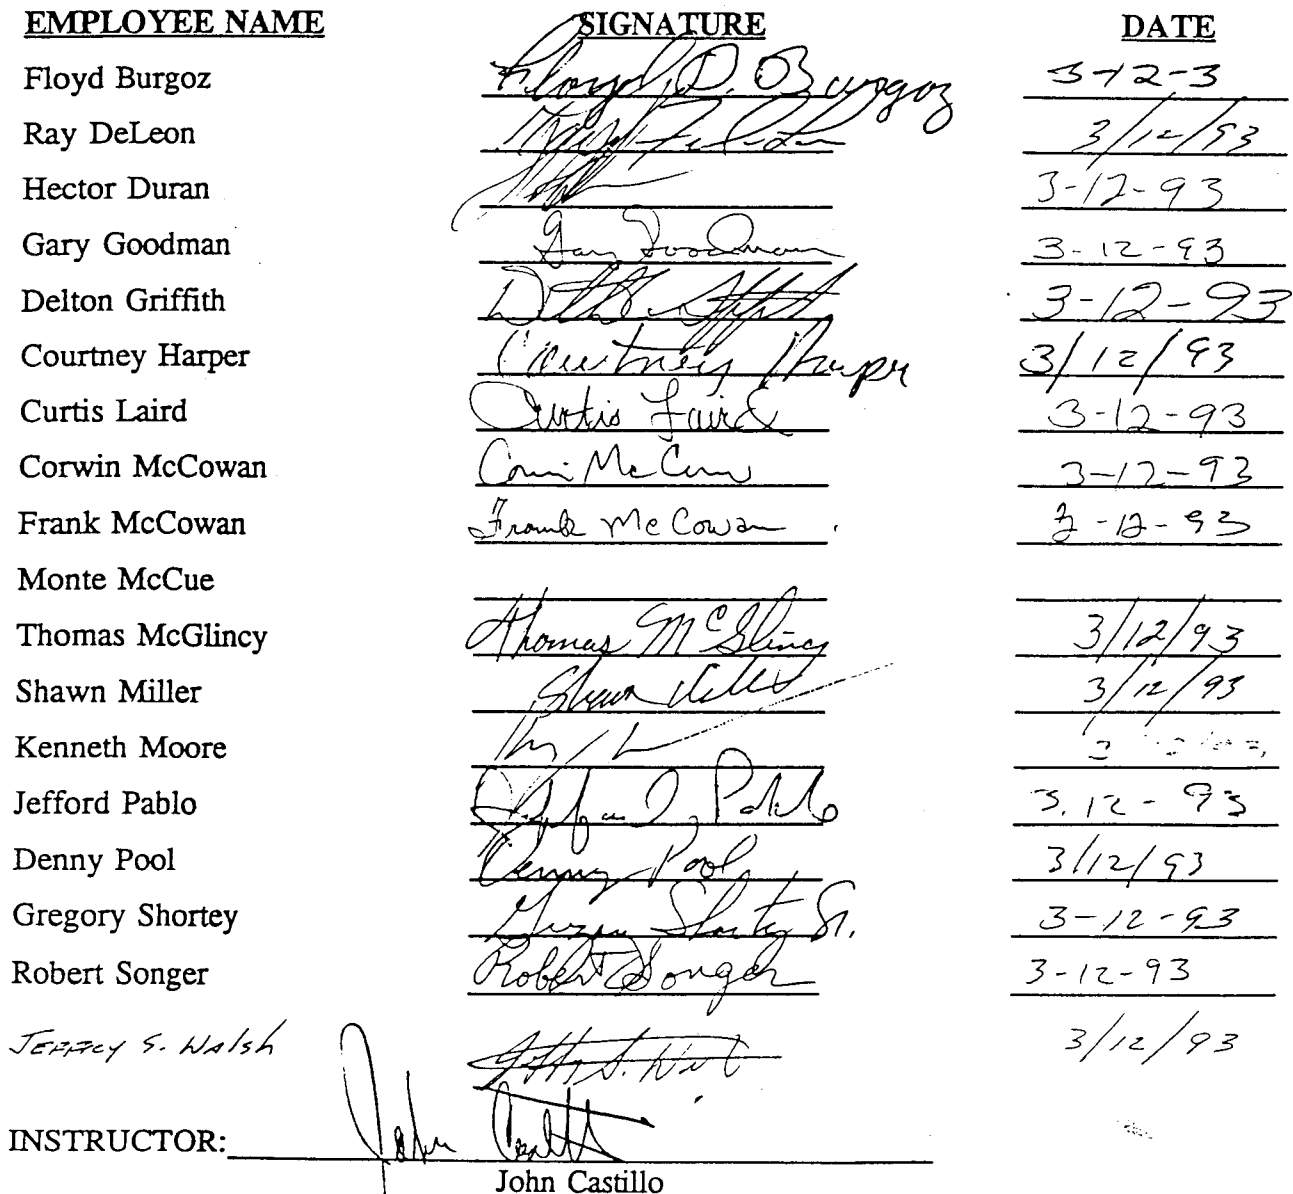 EMPLOYEE NAME SIGNATURE DATE
Floyd Burgoz Floyd D. Burgoz 3-12-3
Ray DeLeon 3/12/93
Hector Duran 3-12-93
Gary Goodman Gary Goodman 3-12-93
Delton Griffith 3-12-93
Courtney Harper Courtney Harper 3/12/93
Curtis Laird Curtis Laird 3-12-93
Corwin McCowan 3-12-93
Frank McCowan Frank McCowan 3-12-93
Monte McCue
Thomas McGlincy Thomas McGlincy 3/12/93
Shawn Miller Shawn 3/12/93
Kenneth Moore
Jefford Pablo Pablo 3.12-93
Denny Pool Denny Pool 3/12/93
Gregory Shortey Shortey Sr. 3-12-93
Robert Songer Robert Songer 3-12-93
JEFFREY S. WAlsh 3/12/93
INSTRUCTOR: John
John Castillo